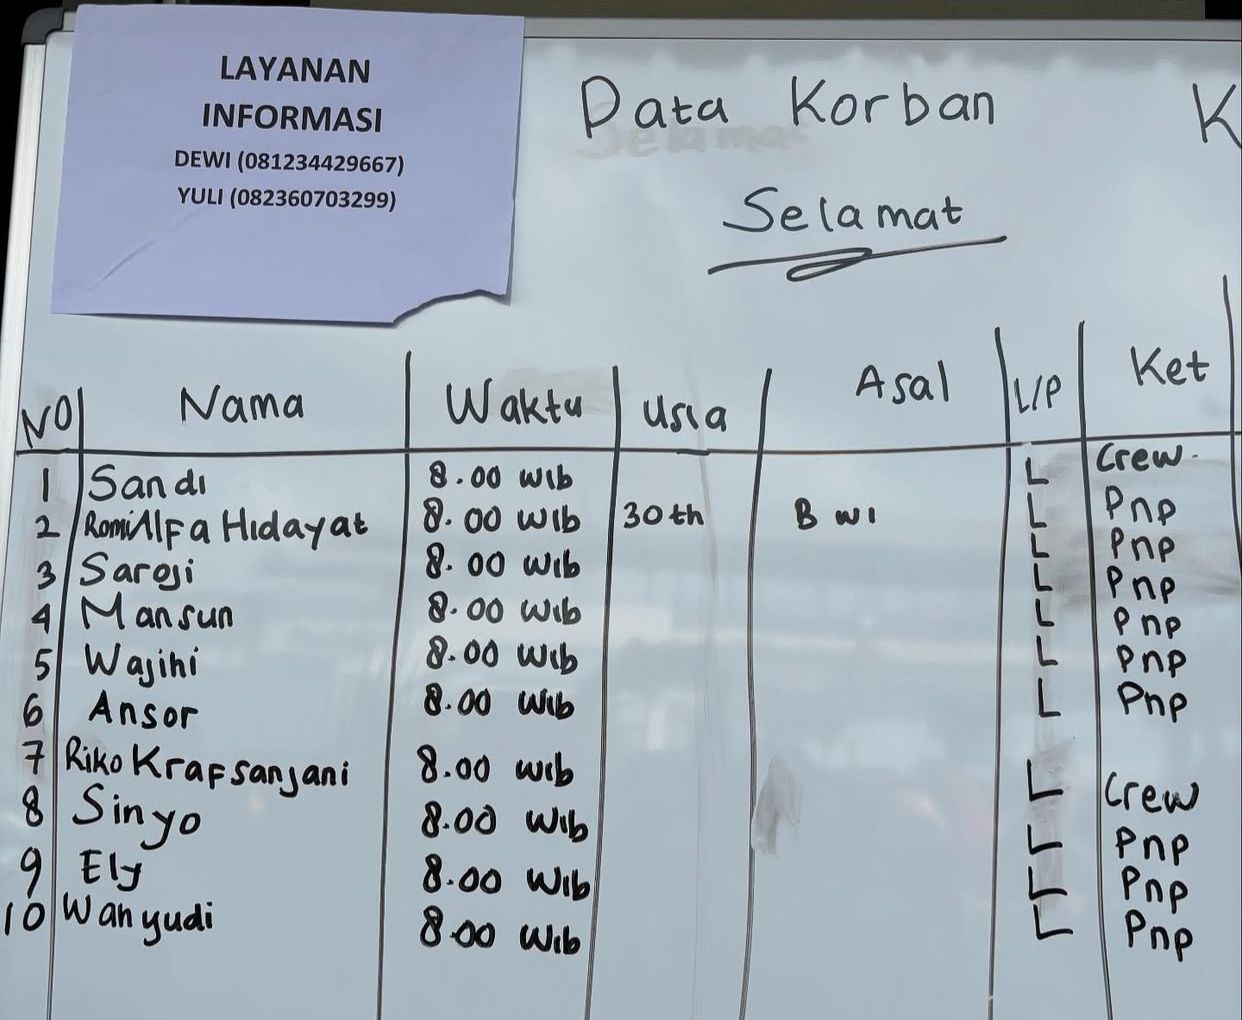 LAYANAN
INFORMASI
DEWI (081234429667)
YULI (082360703299)
Data Korban K
Selamat
NO Nama Waktu Usia Asal L/P Ket
1 Sandi 8.00 Wib L Crew.
2 Romi Alfa Hidayat 8.00 Wib 30th Bwi L Pnp
3 Saroji 8.00 Wib L Pnp
4 Mansun 8.00 Wib L Pnp
5 Wajihi 8.00 Wib L Pnp
6 Ansor 8.00 Wib L Pnp
7 Riko Krafsanjani 8.00 Wib L Pnp
8 Sinyo 8.00 Wib L Crew
9 Ely 8.00 Wib L Pnp
10 Wahyudi 8.00 Wib L Pnp
L Pnp